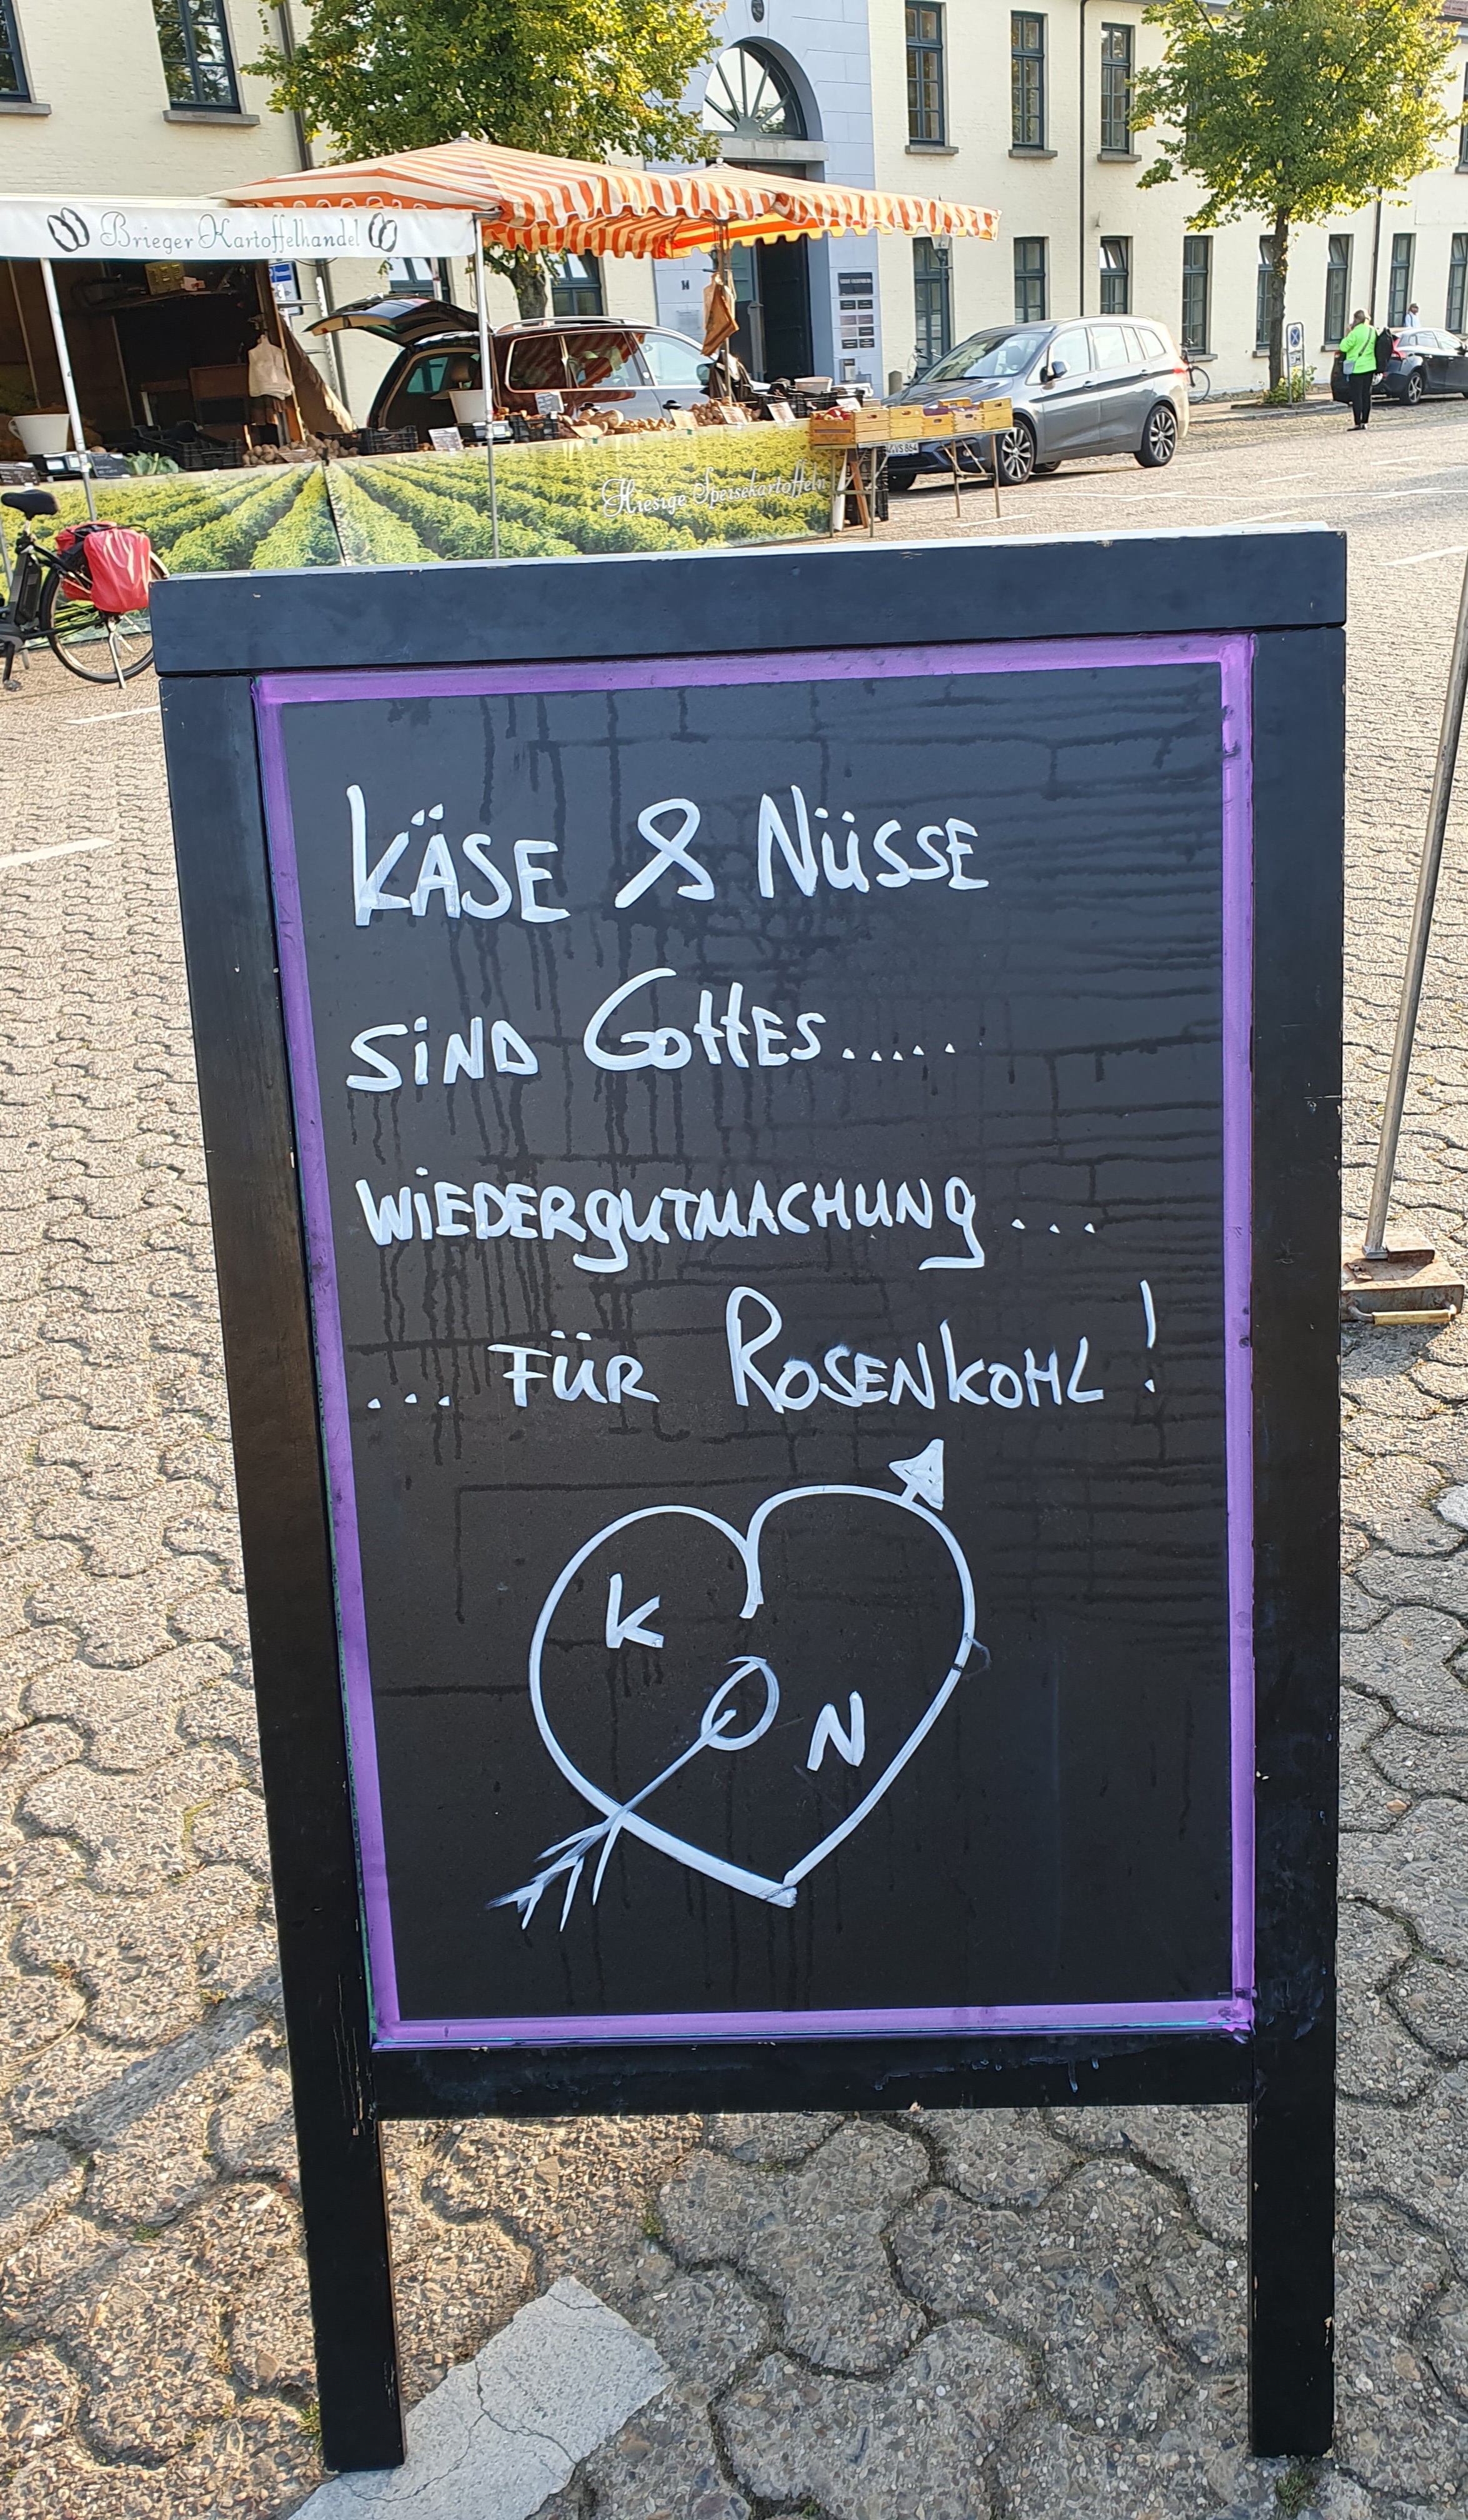 Brieger Kartoffelhandel
Hiesige Speisekartoffeln
KÄSE & NÜSSE
SIND GOTTES.....
WIEDERGUTMACHUNG...
... FÜR ROSENKOHL!
K
N